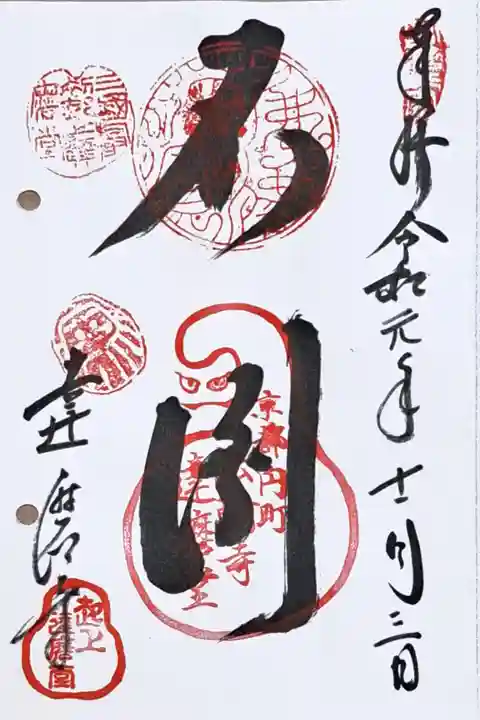 奉拝 令和元年十一月三日
不倒
京都円町
達磨堂
達磨寺
起上
達磨堂